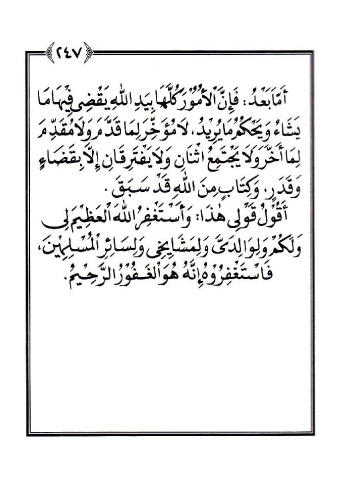 ٢٤٧
أَمَّا بَعْدُ: فَإِنَّ الْأُمُوْرَ كُلَّهَا بِيَدِ اللهِ يَقْضِى فِيْهَا مَا
يَشَاءُ وَيَحْكُمُ مَا يُرِيْدُ، لَا مُؤَخِّرَ لِمَا قَدَّمَ وَلَا مُقَدِّمَ
لِمَا أَخَّرَ وَلَا يَجْتَمِعُ اثْنَانِ وَلَا يَفْتَرِقَانِ إِلَّا بِقَضَاءٍ
وَقَدَرٍ، وَكِتَابٍ مِنَ اللهِ قَدْ سَبَقَ.
أَقُوْلُ قَوْلِى هٰذَا: وَأَسْتَغْفِرُ اللهَ الْعَظِيْمَ لِى
وَلَكُمْ وَلِوَالِدَىَّ وَلِمَشَايِخِى وَلِسَائِرِ الْمُسْلِمِيْنَ،
فَاسْتَغْفِرُوْهُ إِنَّهُ هُوَ الْغَفُوْرُ الرَّحِيْمُ.